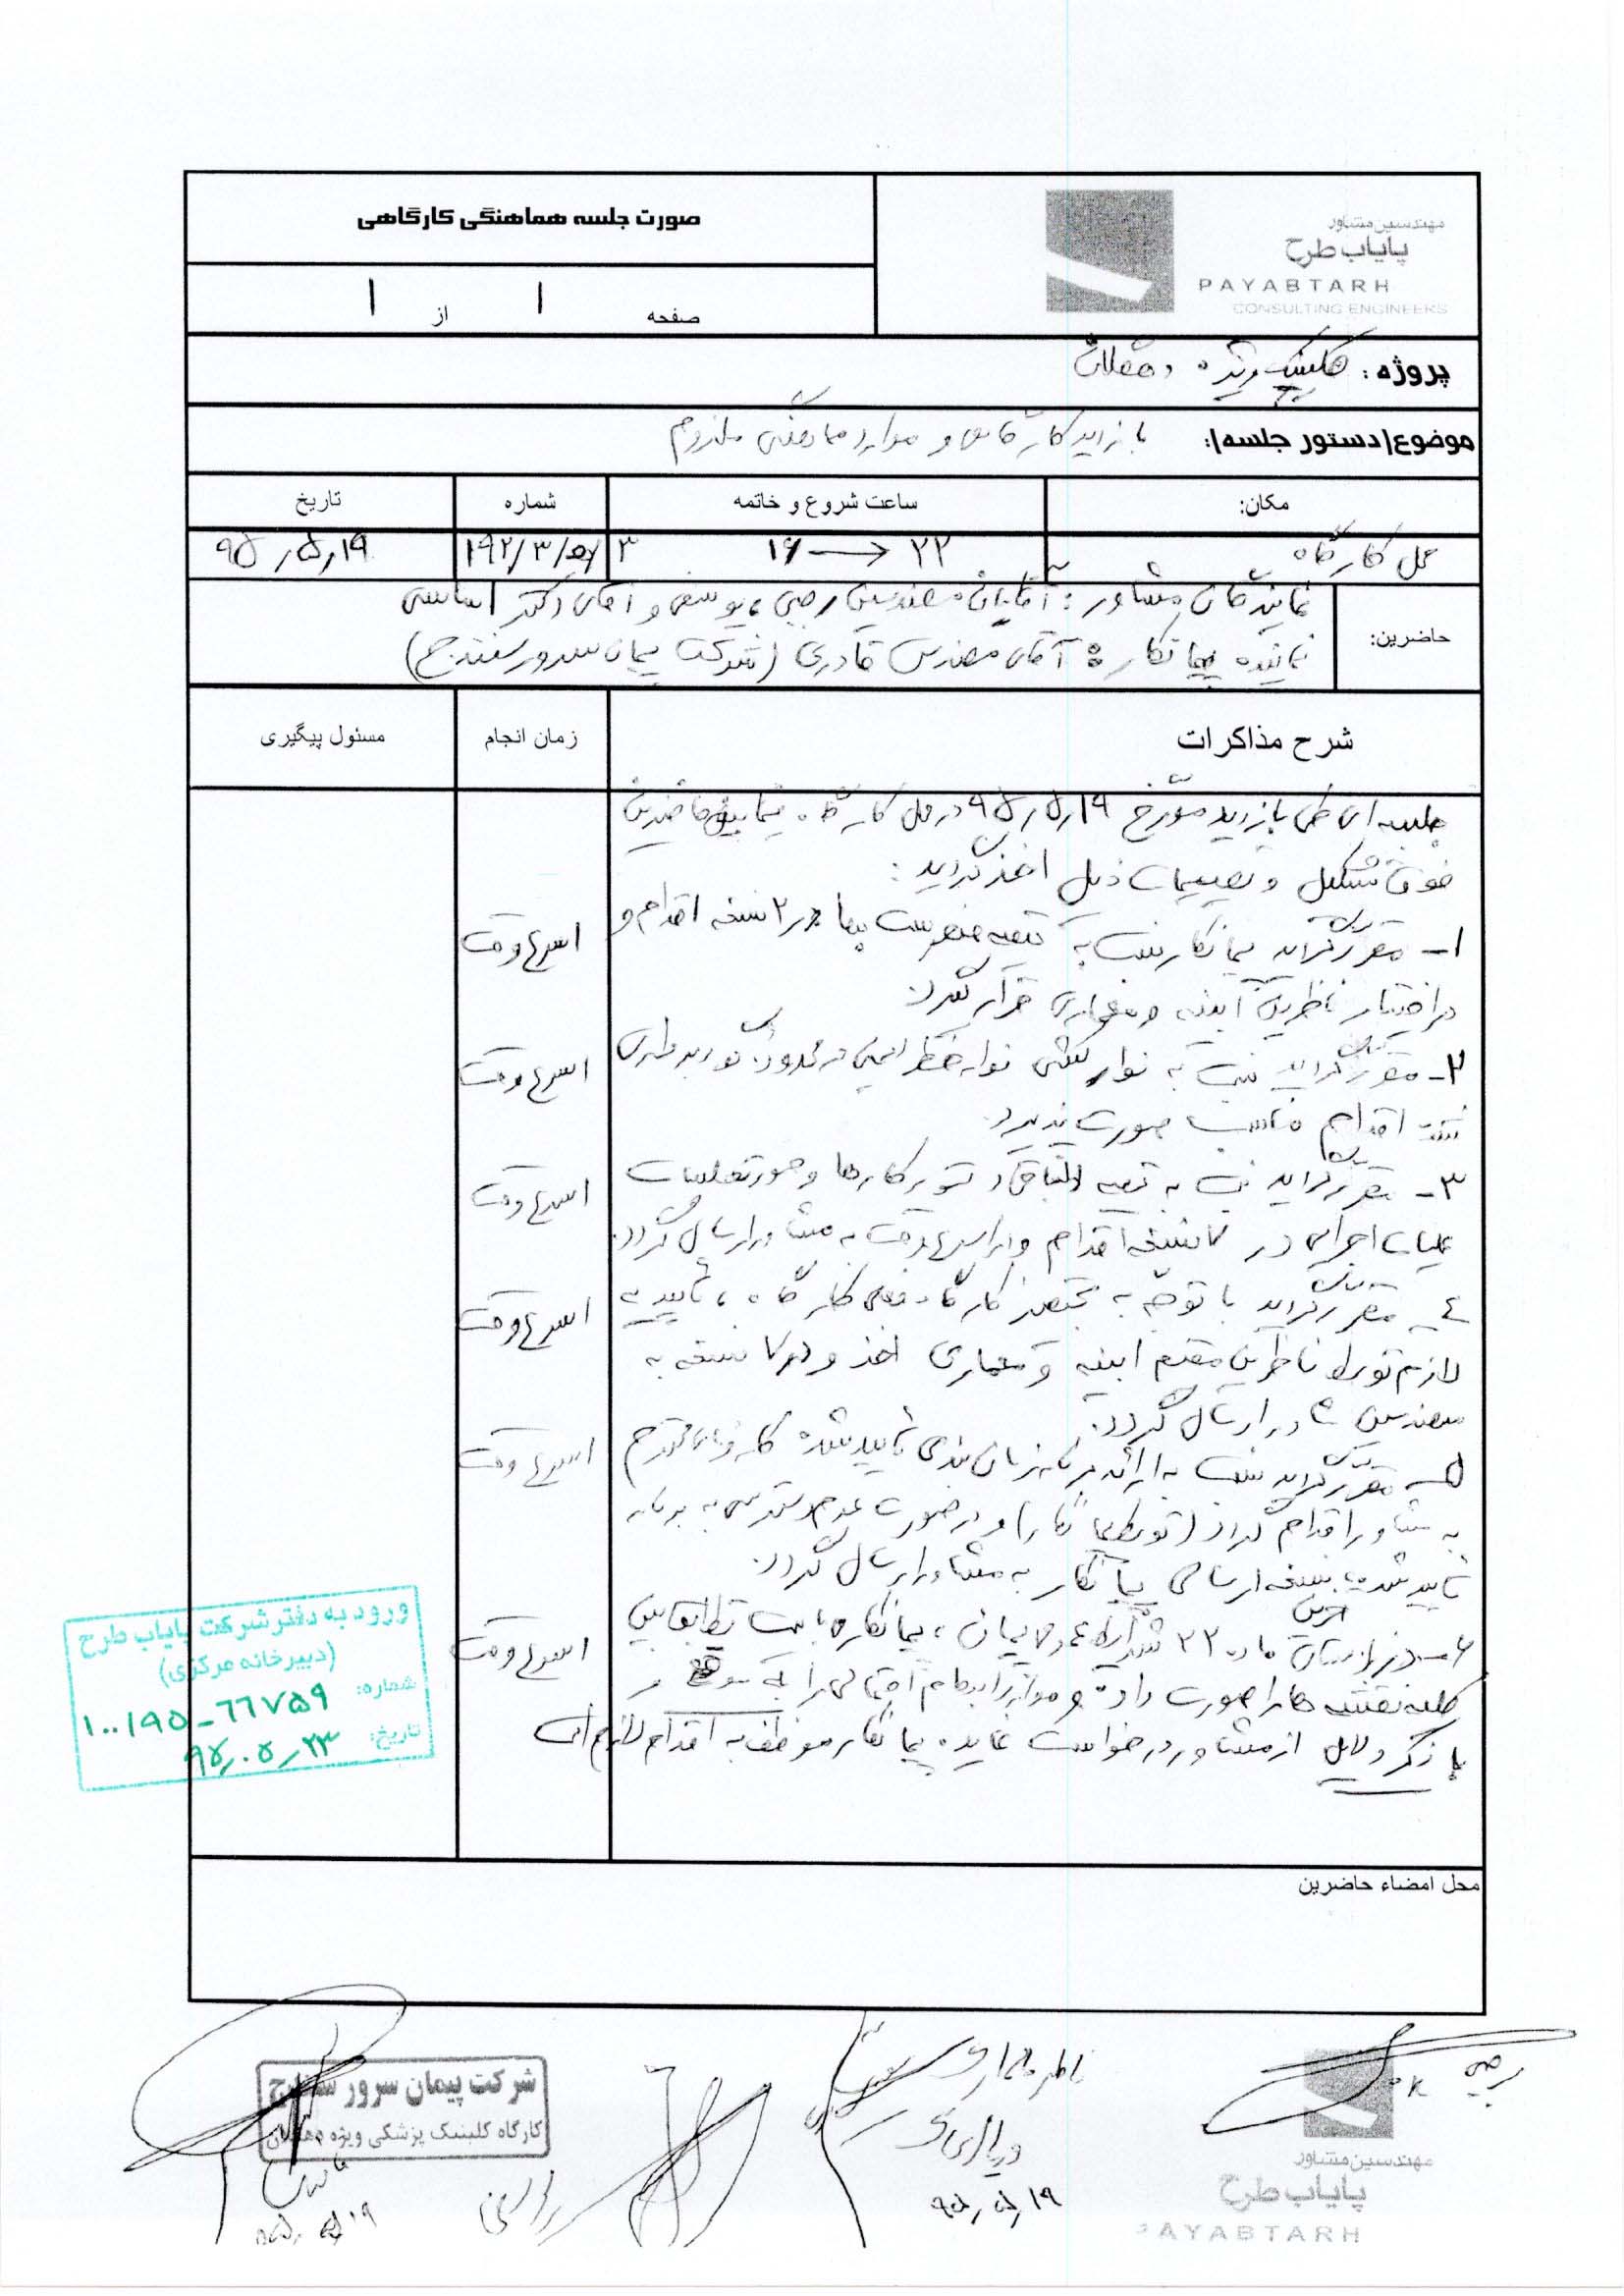 صورت جلسه هماهنگی کارگاهی
مهندسین مشاور
پایاب طرح
PAYABTARH
CONSULTING ENGINEERS
صفحه ۱ از ۱
پروژه: کلینیک ویژه دهقلان
موضوع/دستور جلسه: بازدید کارگاهی و موارد هماهنگی ملزوم
مکان: ساعت شروع و خاتمه شماره تاریخ
محل کارگاه ۲۲ ۱۶ ۳ ۱۹۲/۳/ ۹۵,۵,۱۹
حاضرین: نمایندگان مشاور: آقایان مهندسین رجبی، یوسفی و آقای دکتر
نماینده پیمانکار: آقای مهندس قادری (شرکت پیمان سرور سنندج)
شرح مذاکرات زمان انجام مسئول پیگیری
جلسه ای طی بازدید مورخ ۹۵,۵,۱۹ در محل کارگاه فیمابین حاضرین
فوق تشکیل و تصمیمات ذیل اخذ گردید:
۱- مقرر گردید پیمانکار نسبت به تهیه فهرست بها در ۲ نسخه اقدام و اسرع وقت
در اختیار ناظرین ابنیه و معماری قرار گیرد.
۲- مقرر گردید نسبت به نوار کشی نوار خطر ایمنی در محدوده اسرع وقت
اقدام مناسب صورت پذیرد.
۳- مقرر گردید نسبت به تهیه دستور کارها و صورتجلسات اسرع وقت
عملیات اجرایی در ۲ نسخه اقدام و در اسرع وقت به مشاور ارسال گردد.
٤- مقرر گردید با توجه به کارگاه، تاییدیه اسرع وقت
لازم توسط ناظرین مقیم ابنیه و معماری اخذ و در ۲ نسخه به
مهندسین مشاور ارسال گردد.
۵- مقرر گردید نسبت به ارائه برنامه زمان بندی تایید شده کارفرمای محترم اسرع وقت
به مشاور اقدام گردد (توسط پیمانکار) و در صورت عدم دسترسی به برنامه
تایید شده، نسخه ارسالی پیمانکار به مشاور ارسال گردد.
۶- در راستای ماده ۲۲ شرایط عمومی پیمان، پیمانکار می بایست تطابق بین اسرع وقت
کلیه نقشه ها را صورت داده و موارد ابهام احتمالی را به موقع و
با ذکر دلایل از مشاور درخواست نماید. پیمانکار موظف به اقدام لازم است
ورود به دفتر شرکت پایاب طرح
(دبیرخانه مرکزی)
شماره: ۱۰۰/۹۵-۶۶۷۵۹
تاریخ: ۹۵,۰۵,۲۳
محل امضاء حاضرین
رجبی
ناظر معماری
۹۵,۵,۱۹
شرکت پیمان سرور سنندج
کارگاه کلینیک پزشکی ویژه دهگلان
۹۵,۵,۱۹
مهندسین مشاور
پایاب طرح
PAYABTARH